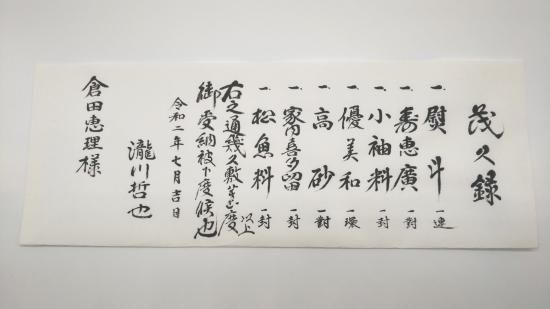 茂久録
一、熨斗 一連
一、寿恵廣 一對
一、小袖料 一封
一、優美和 一環
一、高砂 一對
一、家内喜多留 一封
一、松魚料 一封
以上
右之通幾久敷芽出度
御受納被下度候也
令和二年七月吉日
瀧川哲也
倉田恵理様